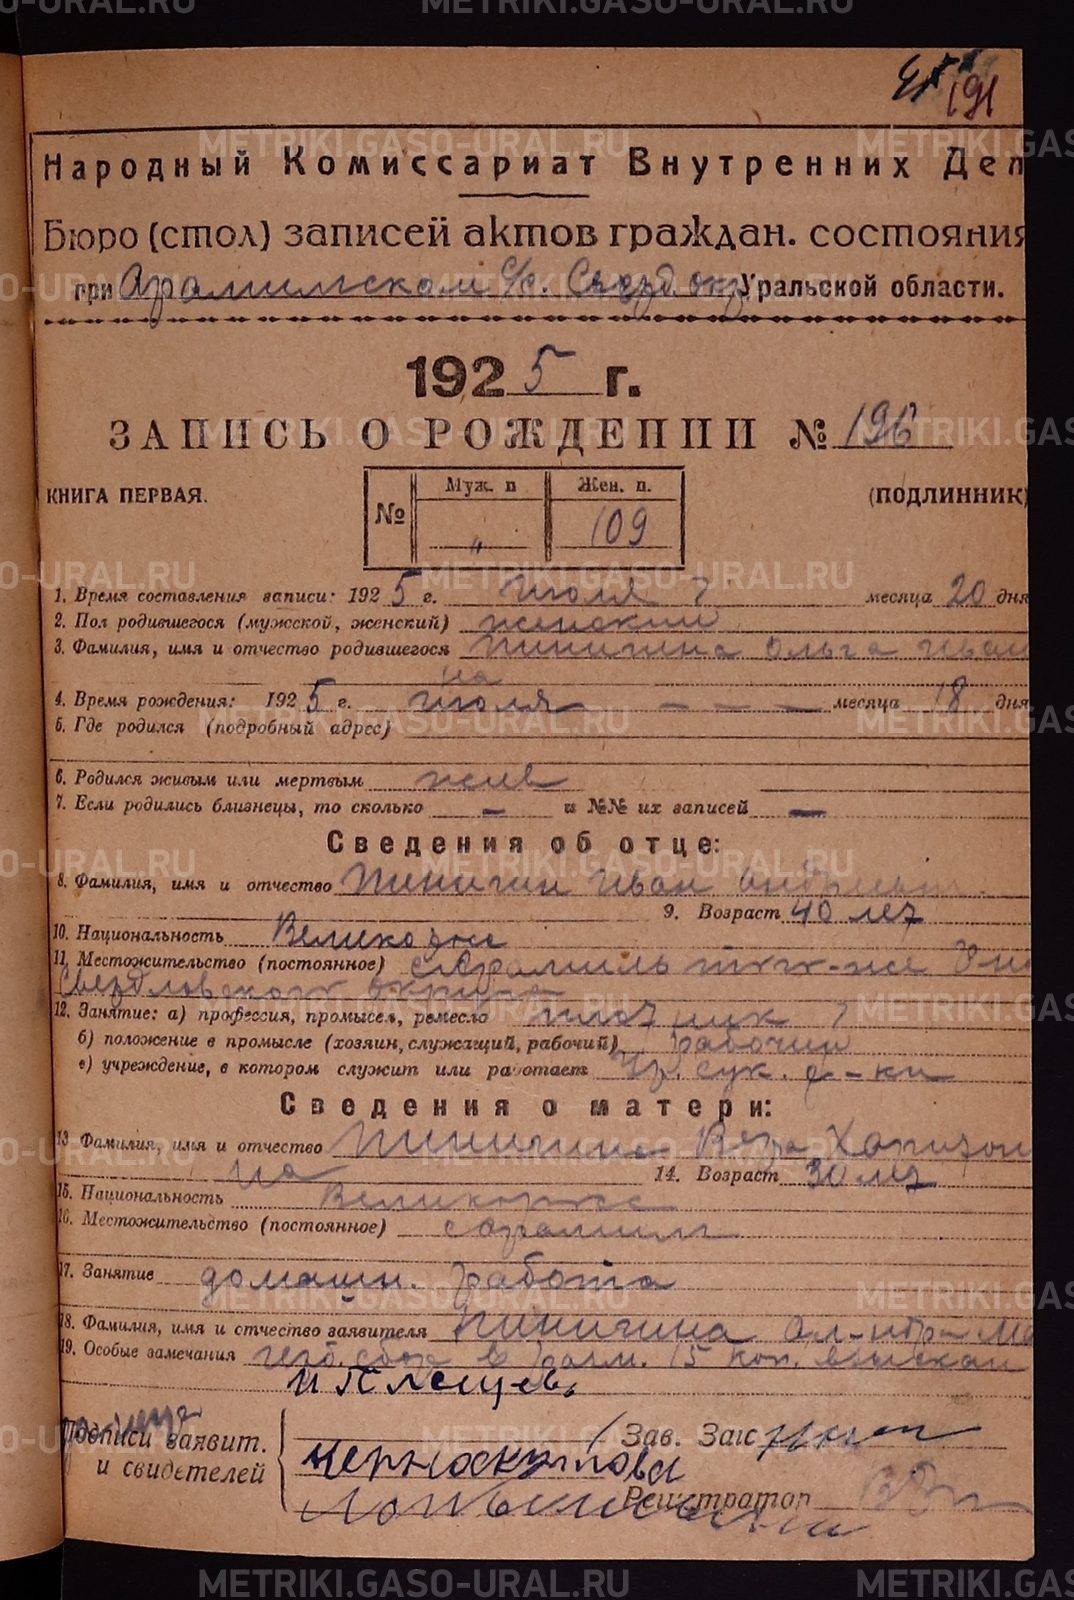 191
Народный Комиссариат Внутренних Дел
Бюро (стол) записей актов граждан. состояния
при Арамильском с/с. Свердл окр Уральской области.
1925 г.
ЗАПИСЬ О РОЖДЕНИИ № 196
КНИГА ПЕРВАЯ.
(ПОДЛИННИК)
№ Муж. п „ Жен. п. 109
1. Время составления записи: 1925 г. июля месяца 20 дня
2. Пол родившегося (мужской, женский) женский
3. Фамилия, имя и отчество родившегося Пинигина Ольга Иван
на
4. Время рождения: 1925 г. июля — — — месяца 18 дня
5. Где родился (подробный адрес)
6. Родился живым или мертвым жив
7. Если родились близнецы, то сколько — и №№ их записей —
Сведения об отце:
8. Фамилия, имя и отчество Пинигин Иван Андреевич.
9. Возраст 40 лет
10. Национальность Великорус
11. Местожительство (постоянное) с Арамиль того-же
Свердловского округа
12. Занятие: а) профессия, промысел, ремесло плотник
б) положение в промысле (хозяин, служащий, рабочий) рабочий
в) учреждение, в котором служит или работает Ар. сук. ф-ки
Сведения о матери:
13 Фамилия, имя и отчество Пинигина Вера Харитон
на 14. Возраст 30 лет
15. Национальность Великорус
16. Местожительство (постоянное) с Арамиль
17. Занятие домашн. работа
18. Фамилия, имя и отчество заявителя Пинигина Ал-ндра
19. Особые замечания герб. сбор в разм. 15 коп. взыскан
Подписи заявит.
и свидетелей
Зав. Загс
Черноскутова
Регистратор
METRIKI.GASO-URAL.RU